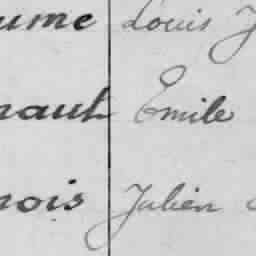 ume Louis J
nault Emile
nois Julien